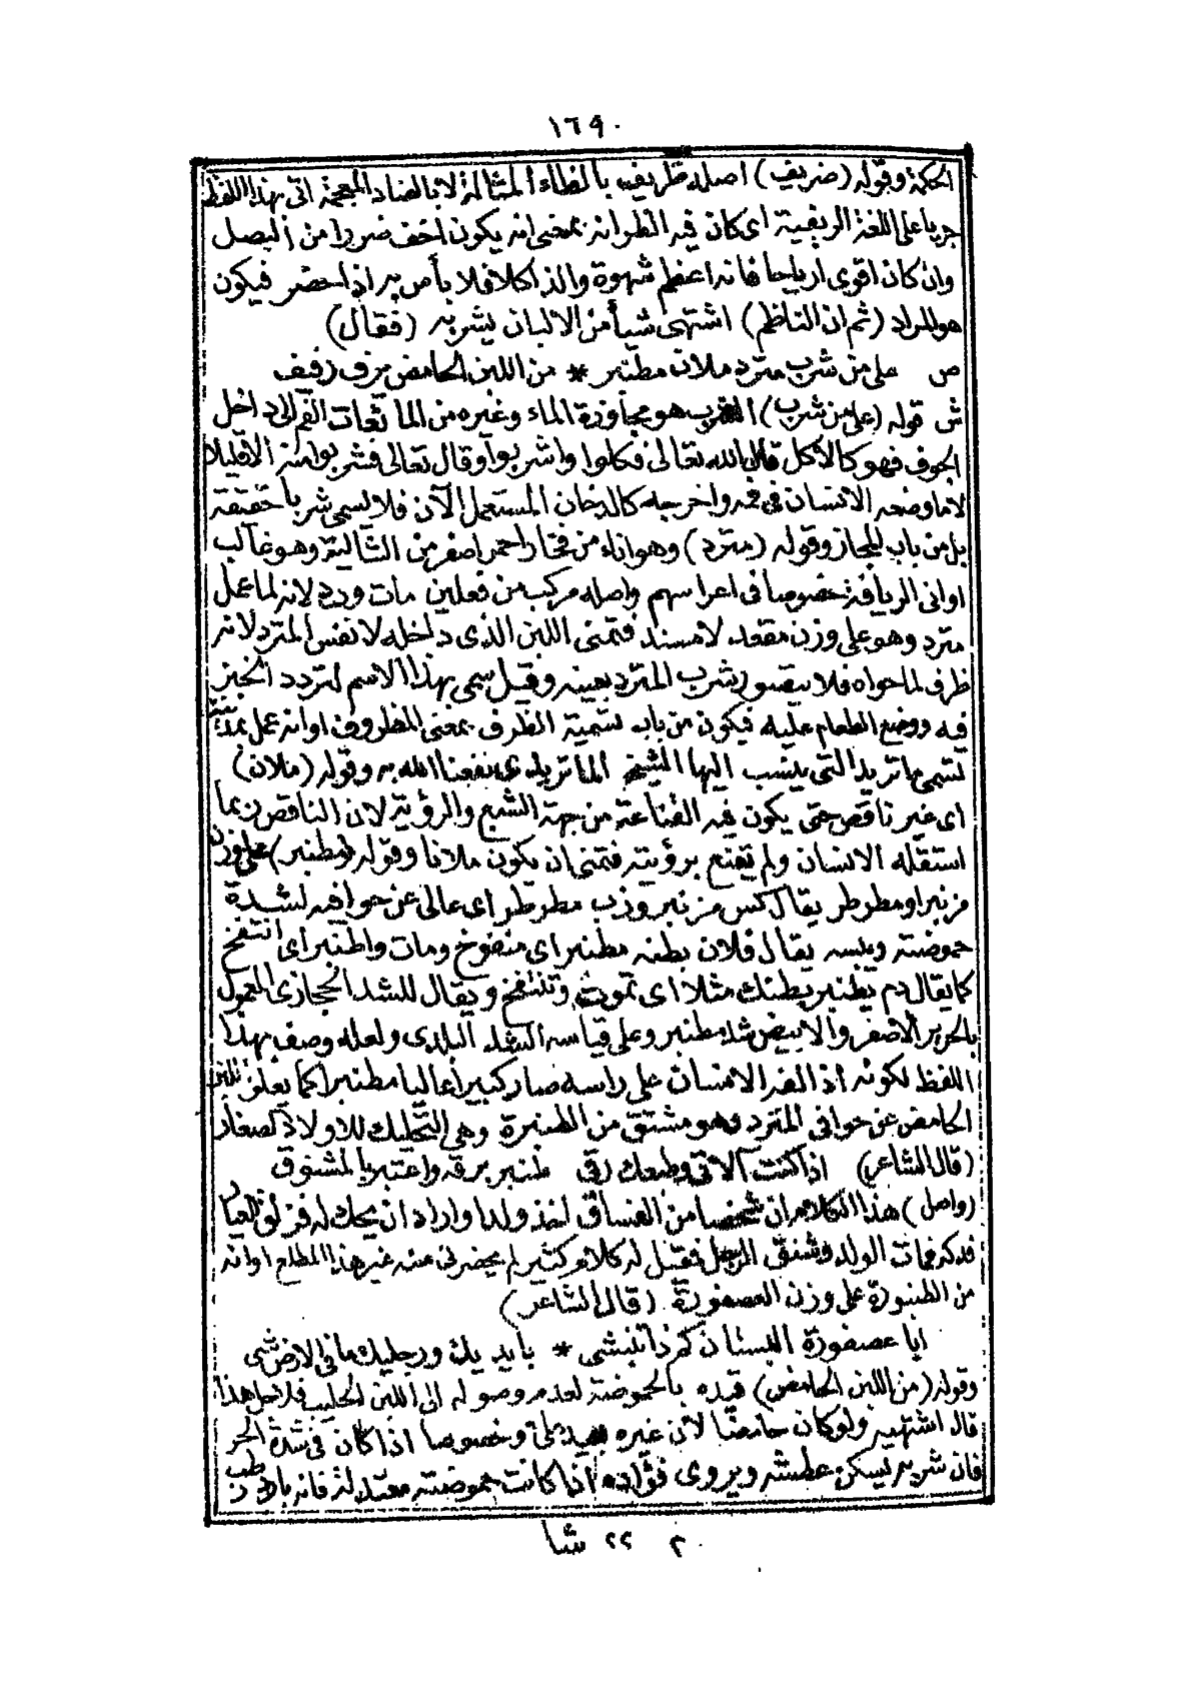 ١٦٩
الحكمة وقوله (ضريف) اصله ظريف بالظاء المشالة لا بالضاد المعجمة اتى بهذا اللفظ
جريا على اللغة الريفية اى كان فيه الظرافة بمعنى انه يكون اخف ضررا من البصل
وان كان اقوى ارياحا فانه اعظم شهوة والذ اكلا فلا بأس به اذا حضر فيكون
هو المراد (ثم ان الناظم) اشتهى شيأ من الالبان يشربه (فقال)
ص على من شرب مترد ملان مطنبر * من اللبن الحامض يزف رفيف
ش قوله (على من شرب) الشرب هو مجاوزة الماء وغيره من المائعات الفم الى داخل
الجوف فهو كالاكل قال الله تعالى فكلوا واشربوا وقال تعالى فشربوا منه الا قليلا
لا ما وضعه الانسان فى فمه واخرجه كالدخان المستعمل الآن فلا يسمى شربا حقيقة
بل من باب المجاز وقوله (مترد) وهو اناء من فخار احمر اصغر من الشالية وهو غالب
اوانى الريافة خصوصا فى اعراسهم واصله مركب من فعلين مات ورد لانه لما عمل
مترد وهو على وزن مقعد لا مسند فتمنى اللبن الذى داخله لا نفس المترد لانه
ظرف لما حواه فلا يتصور شرب المترد بعينه وقيل سمى بهذا الاسم لتردد الخبز
فيه ووضع الطعام عليه فيكون من باب تسمية الظرف بمعنى المظروف او انه عمل بمدينة
تسمى ماتريد التى ينسب اليها الشيخ الماتريدى نفعنا الله به وقوله (ملان)
اى غير ناقص حتى يكون فيه القناعة من جهة الشبع والرؤية لان الناقص ربما
استقله الانسان ولم يقنع برؤيته فتمنى ان يكون ملانا وقوله (مطنبر) على وزن
مزنبر او مطرطر يقال كس مزنبر وزب مطرطر اى عالى عن حوافيه لشدة
حموضته ويبسه يقال فلان بطنه مطنبر اى منفوخ ومات واطنبر اى انتفخ
كما يقال دم يطنبر بطنك مثلا اى تموت وتنتفخ ويقال للشد الحجازى المعمول
بالحرير الاصفر والابيض شد مطنبر وعلى قياسه الشد البلدى ولعله وصف بهذا
اللفظ لكونه اذ الفه الانسان على راسه صار كبيرا عاليا مطنبرا كما يعلو اللبن
الحامض عن حوافى المترد وهو مشتق من الطنبرة وهى التحليك للاولاد الصغار
(قال الشاعر) اذا كنت آلاتى وطبعك رقى طنبر برقه واعتبر بالمشنوق
(واصل) هذا الكلام ان شخصا من الفساق اخذ ولدا واراد ان يحك له فزلق
فدكه فمات الولد وشنق الرجل فقيل له كلام كثير لم يحضرنى عنه غير هذا المطلع او انه
من الطنبورة على وزن العصفورة (قال الشاعر)
ايا عصفورة البستان كم ذا تنبشى * بايديك ورجليك ما فى الارض شى
وقوله (من اللبن الحامض) قيده بالحموضة لعدم وصوله الى اللبن الحليب فلاجل هذا
قال اشتهيه ولو كان حامضا لان غيره بعيد على وخصوصا اذا كان فى شدة الحر
فان شربه يسكن عطشه ويروى فؤاده اذا كانت حموضته معتدلة فانه بارد رطب
٢ ٢٢ شا